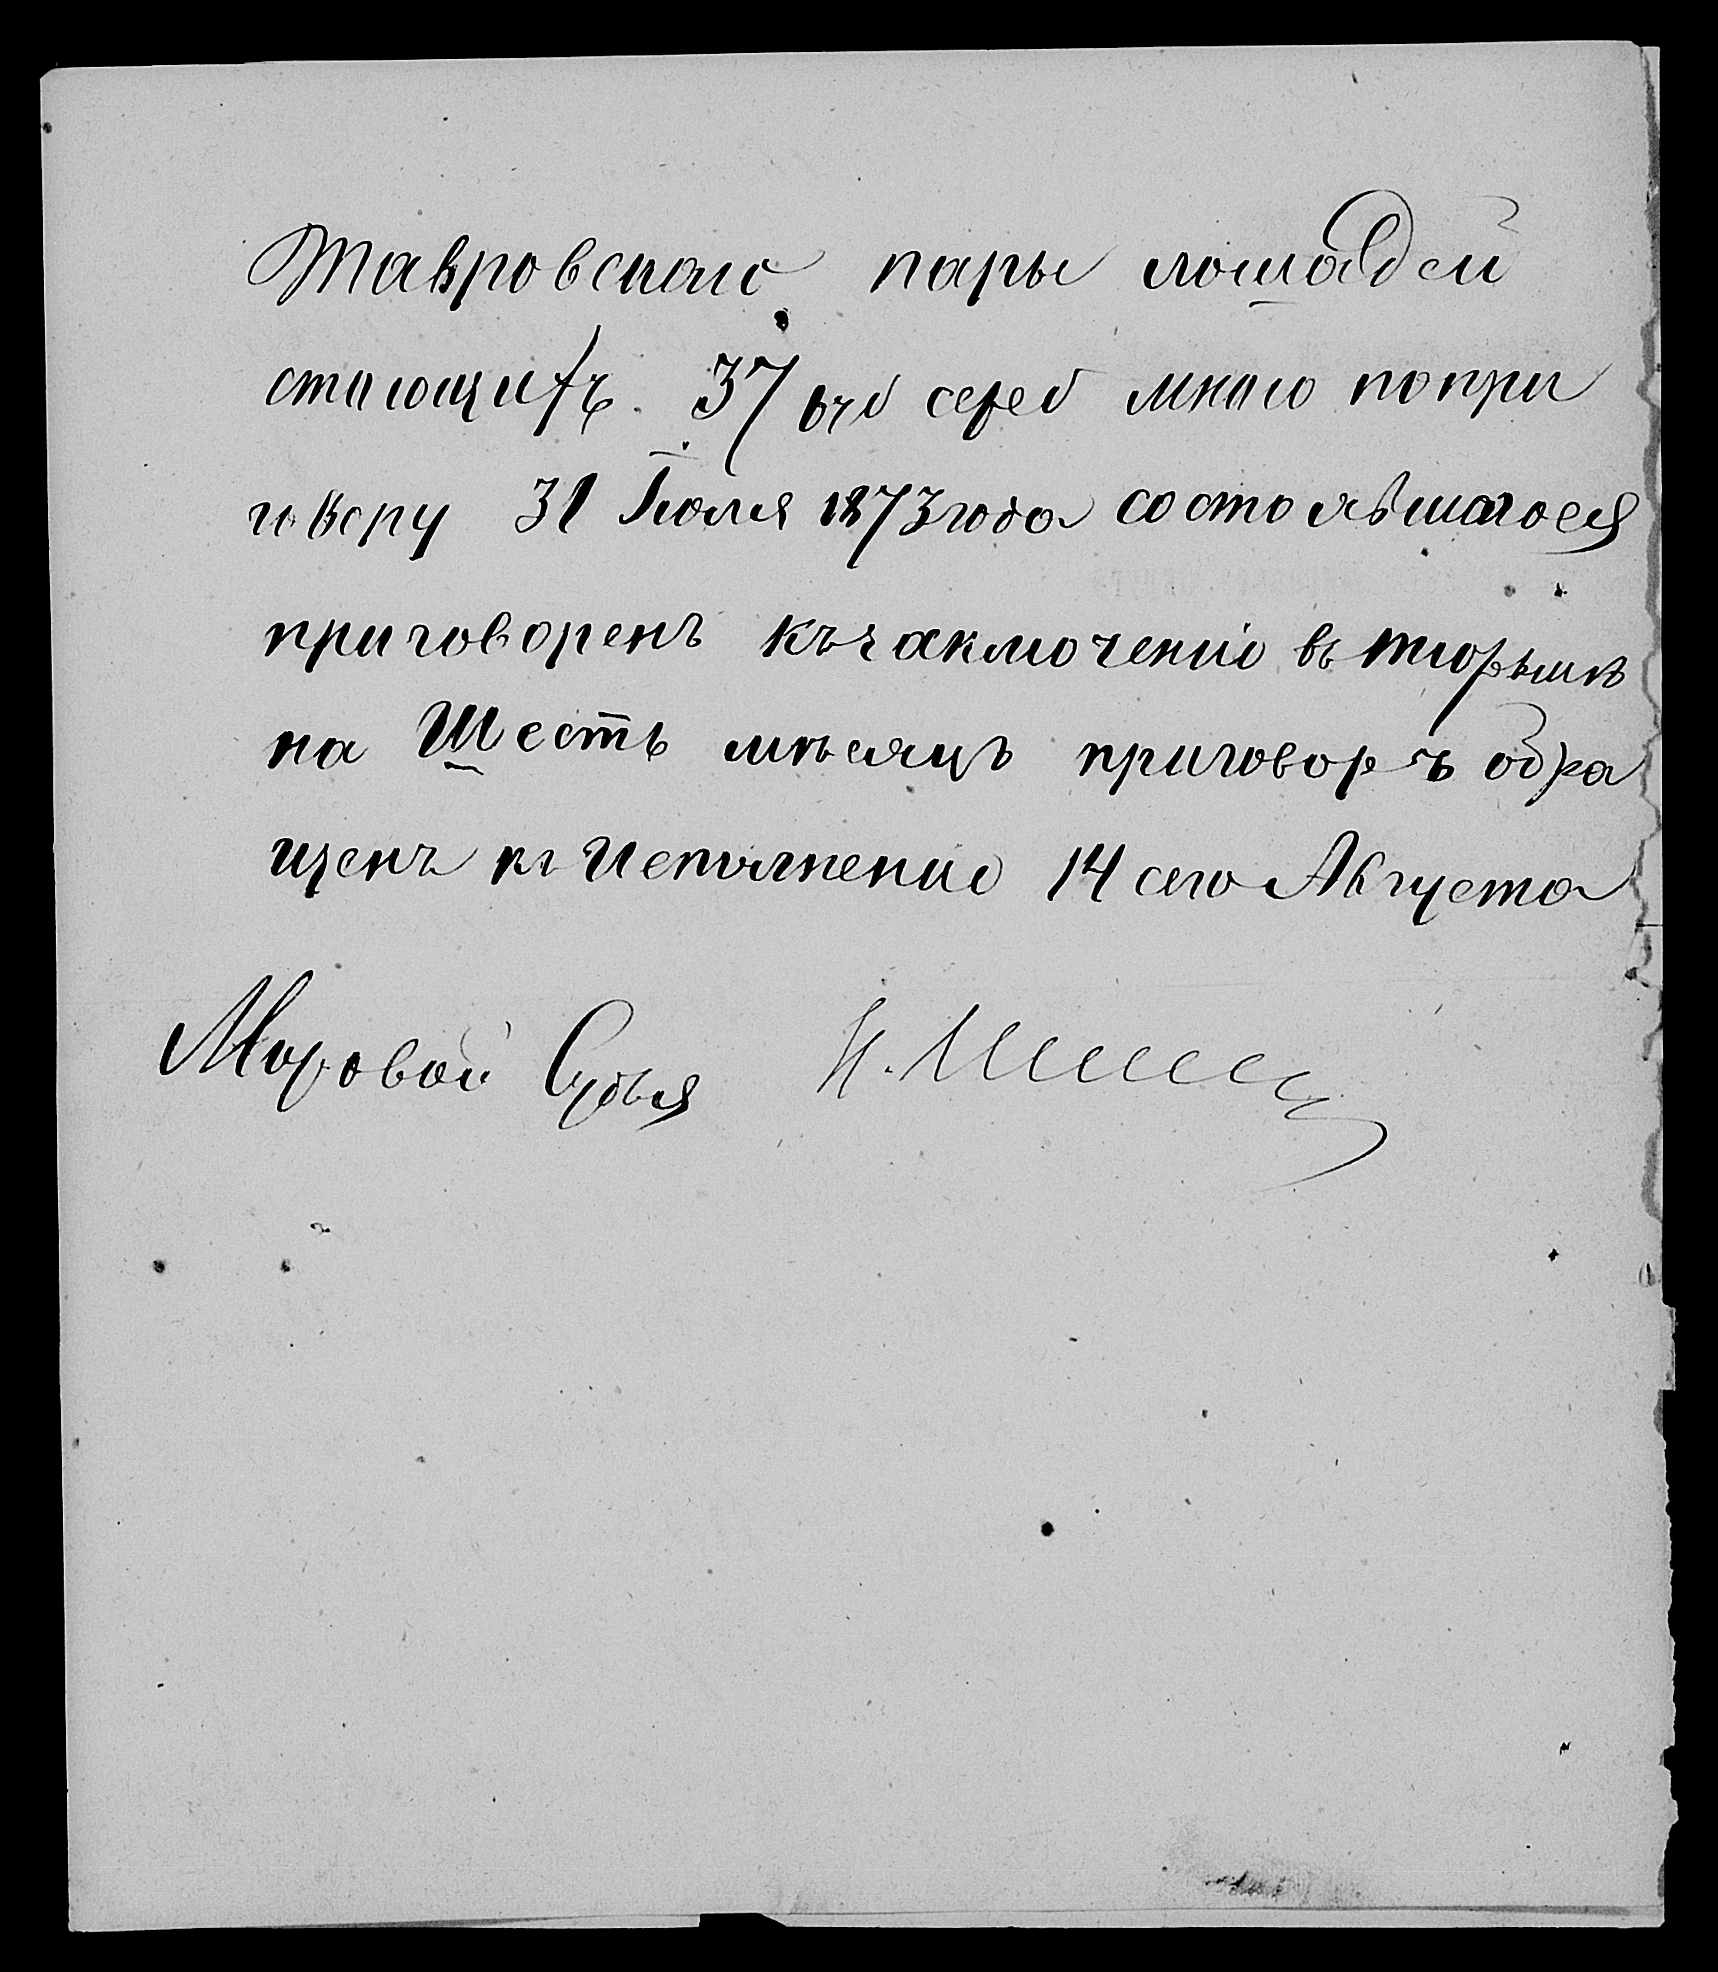 Тавровскаго пары лошадей
стоющихъ 37 руб сереб мною попри
говору 31 Іюля 1873 года состоявшагося
приговоренъ къ заключенію въ тюрьмѣ
на Шесть мѣсяцъ приговоръ обра
щенъ къ Исполненію 14 сего Августа
Мировой Судья